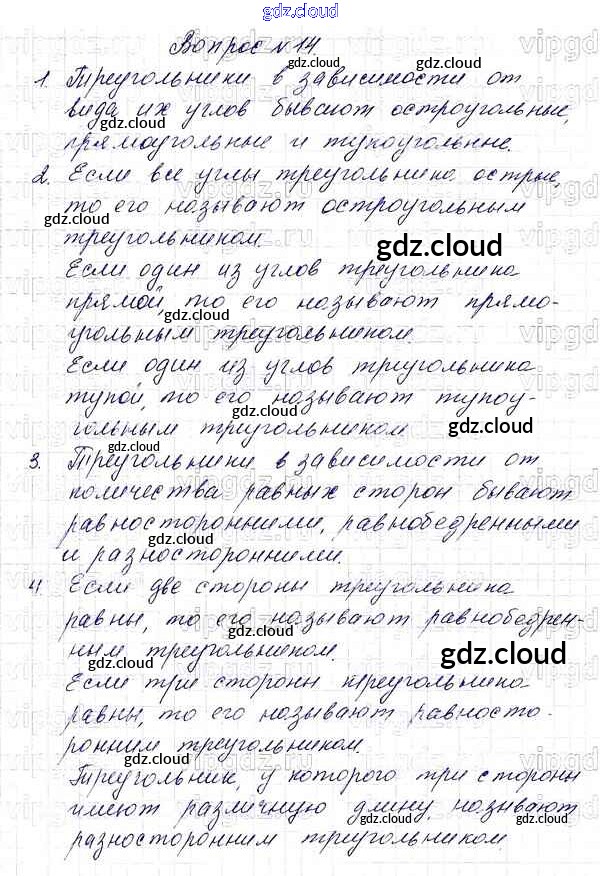 gdz.cloud
Вопрос №14.
1. Треугольники в зависимости от
вида их углов бывают остроугольные,
прямоугольные и тупоугольные.
2. Если все углы треугольника острые,
то его называют остроугольным
треугольником.
Если один из углов треугольника
прямой, то его называют прямо-
угольным треугольником.
Если один из углов треугольника
тупой, то его называют тупоу-
гольным триугольником
3. Треугольники в зависимости от
количества равных сторон бывают
равносторонними, равнобедренными
и разносторонними.
4 Если две стороны треугольника
равны, то его называют равнобедрен-
ным треугольником.
Если три стороны треугольника
равны, то его называют равносто-
ронним треугольником.
Треугольник, у которого три стороны
имеют различную длину, называют
разносторонним триугольником.